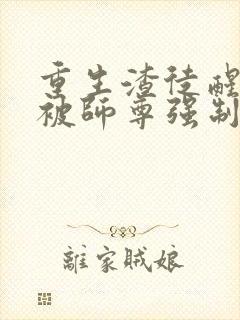 重生渣徒醒
被師尊强制
離家賊娘